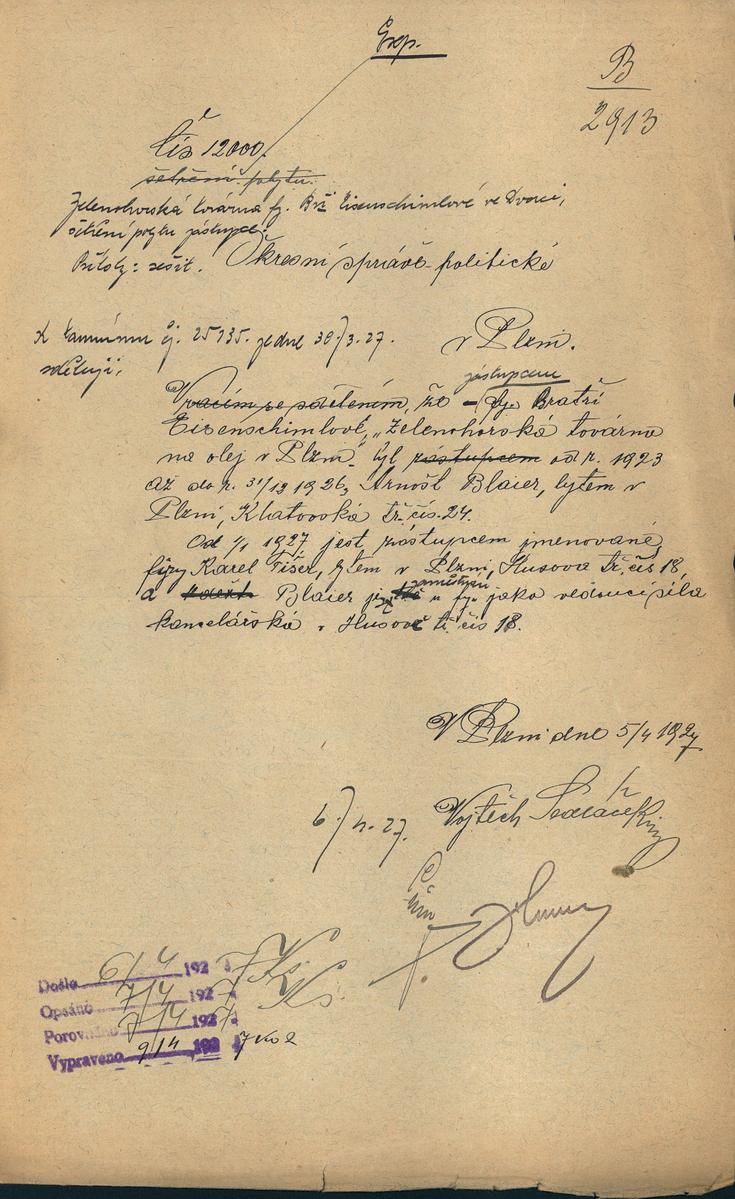 Exp.
B
2913
čís 12000.
šetření pobytu.
Zelenohorská továrna fy. Bří Eisenschimlové ve Dvorci,
šetření pobytu zástupce.
Příloh: sešit. Okresní správě politické
K tamnímu čj. 25135. ze dne 30/3.27. v Plzni.
sděluji,
zástupcem
Vracím se sdělením, že - fy. Bratří
Eisenschimlové, „Zelenohorská továrna
na olej v Plzni" byl zástupcem od r. 1923
až do r. 31/12 1926, Arnošt Blaier, bytem v
Plzni, Klatovská tř. čís. 24.
Od 1/1 1927 jest zástupcem jmenované
firmy Karel Fišer, bytem v Plzni, Husova tř. čís 18,
zaměstnán
a Blaier jest u fy. jako vedoucí síla
kancelářská v Husově tř. čís 18.
V Plzni dne 5/4 1927
6/4.27. Vojtěch Sedláček
Došlo 6/4 1927
Opsáno 7/4 1927
Porovnáno 7/4 1927
Vypraveno 9/4 1927